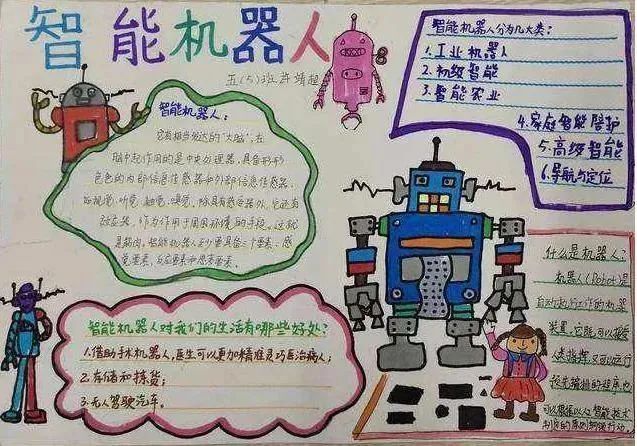 智能机器人
五(5)班许靖超
智能机器人分为几大类:
1.工业机器人
2.初级智能
3.智能农业
4.家庭智能陪护
5.高级智能
6.导航与定位
智能机器人:
它有相当发达的“大脑”,在
脑中起作用的是中央处理器,具备形形
色色的内部信息传感器和外部信息传感器,
如视觉、听觉、触觉、嗅觉,除具有感受器外,它还有
效应器,作为作用于周围环境的手段。这就
是筋肉,智能机器人至少要具备三个要素:感
觉要素,反应要素和思考要素。
什么是机器人?
机器人(Robot)是
自动执行工作的机器
装置。它既可以接受
人类指挥,又可以运行
预先编排的程序,也
可以根据以人工智能技术
制定的原则纲领行动。
智能机器人对我们的生活有哪些好处?
1.借助手术机器人,医生可以更加精准灵巧医治病人;
2.存储和拣货;
3.无人驾驶汽车。